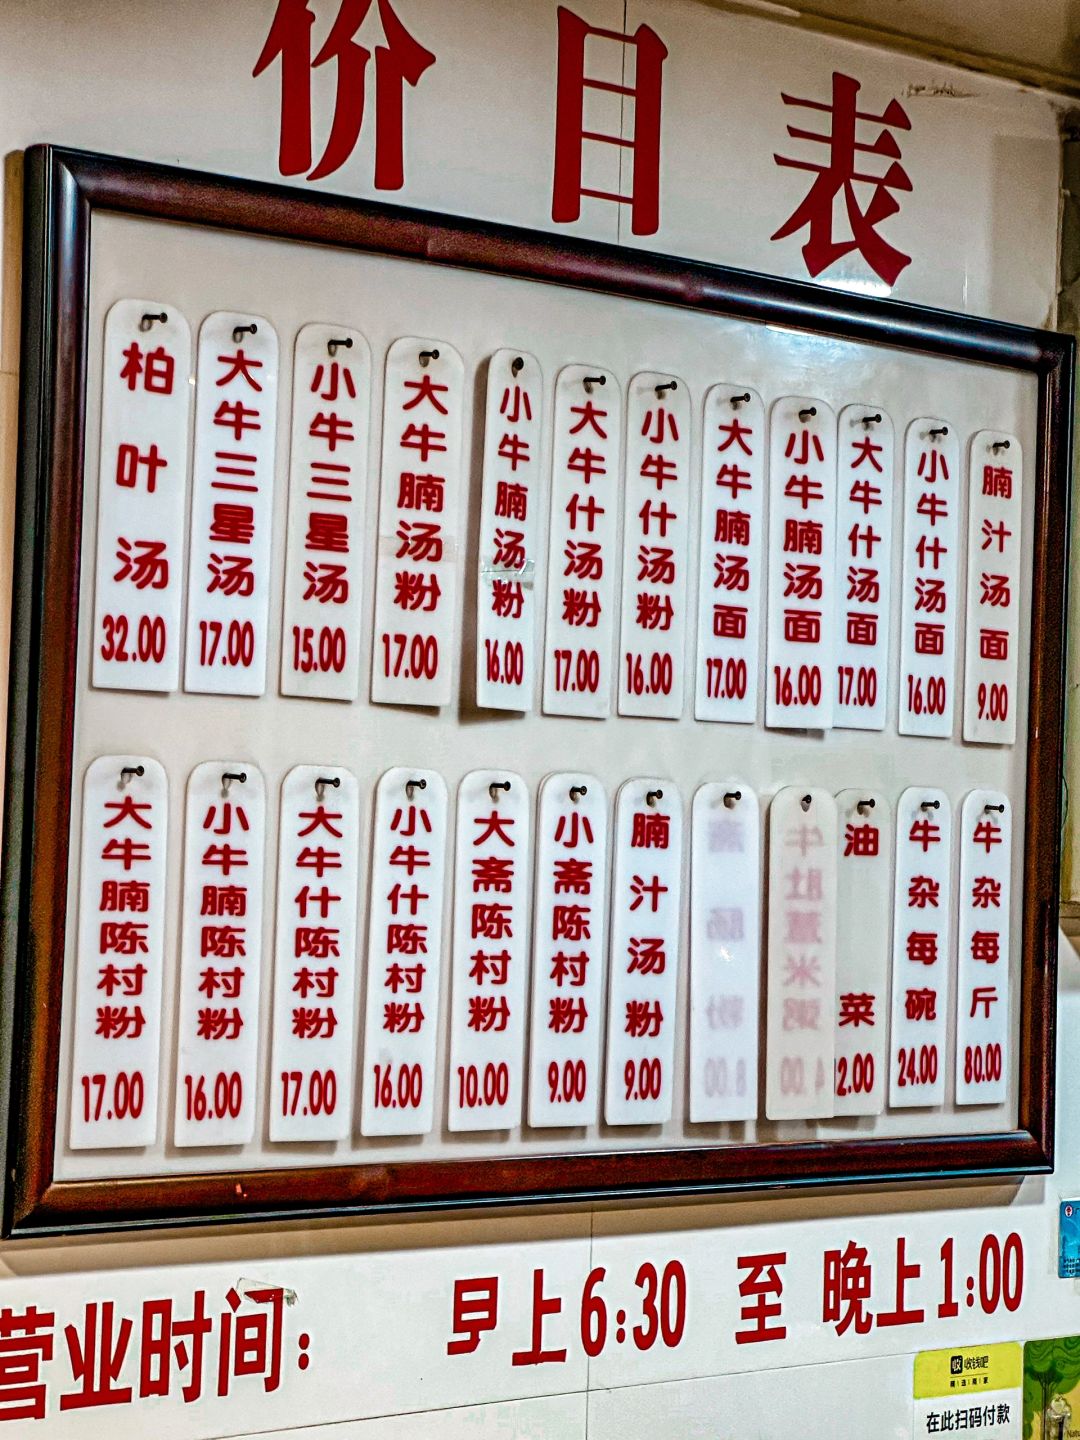 价目表
柏叶汤 32.00
大牛三星汤 17.00
小牛三星汤 15.00
大牛腩汤粉 17.00
小牛腩汤粉 16.00
大牛什汤粉 17.00
小牛什汤粉 16.00
大牛腩汤面 17.00
小牛腩汤面 16.00
大牛什汤面 17.00
小牛什汤面 16.00
腩汁汤面 9.00
大牛腩陈村粉 17.00
小牛腩陈村粉 16.00
大牛什陈村粉 17.00
小牛什陈村粉 16.00
大斋陈村粉 10.00
小斋陈村粉 9.00
腩汁汤粉 9.00
斋肠粉 8.00
牛肚薏米粥
油菜
牛杂每碗 24.00
牛杂每斤 80.00
营业时间： 早上6:30 至 晚上1:00
收钱吧
在此扫码付款